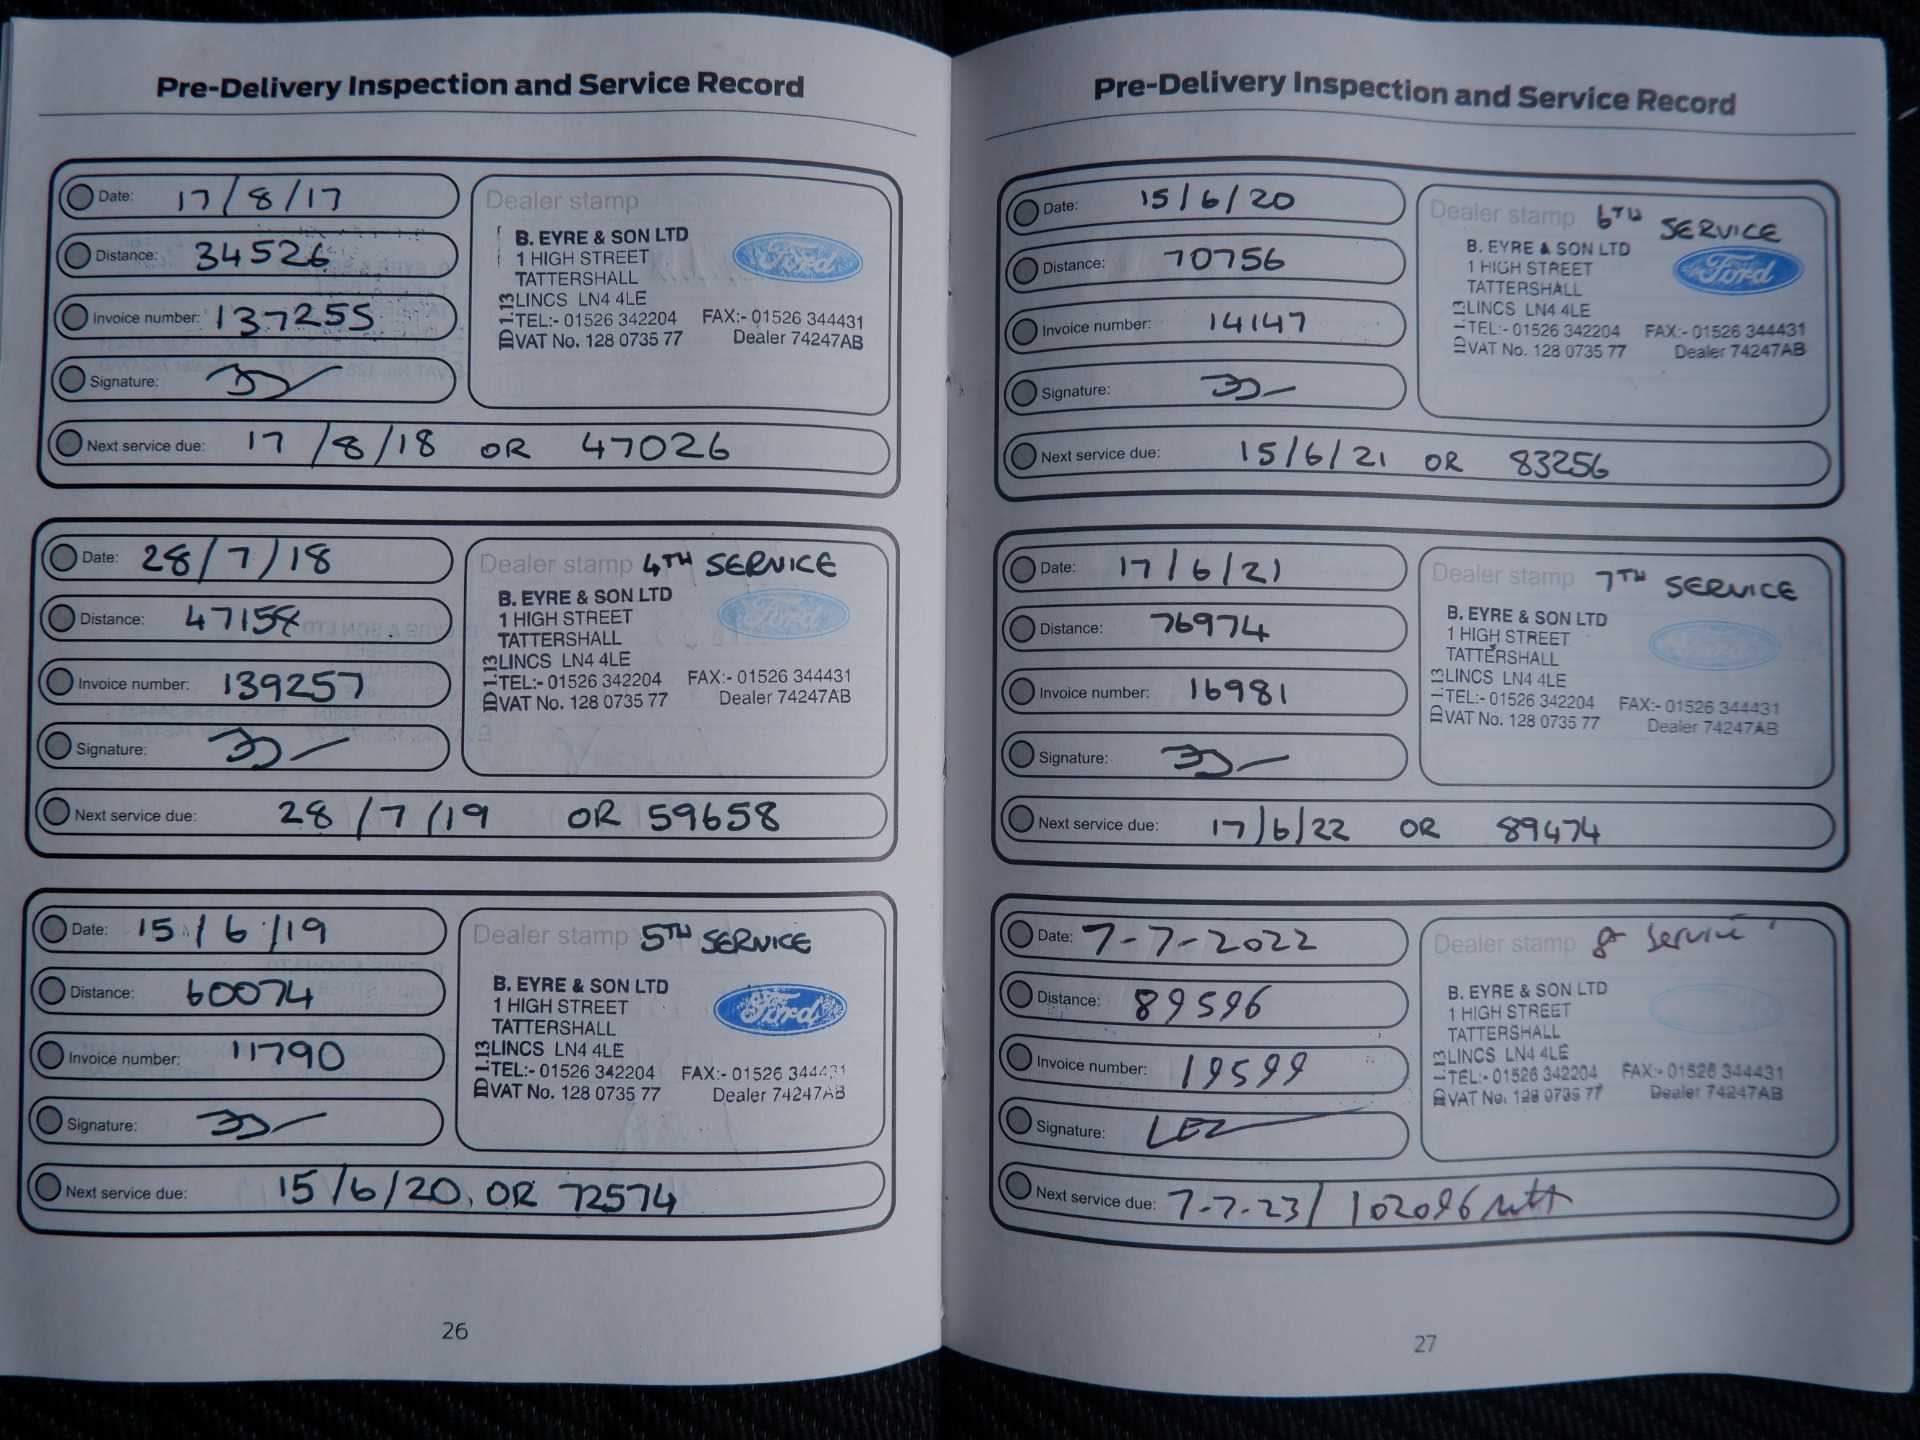 Pre-Delivery Inspection and Service Record
Date: 17/8/17
Distance: 34526
Invoice number: 137255
Signature:
Dealer stamp
B. EYRE & SON LTD
1 HIGH STREET
TATTERSHALL
LINCS LN4 4LE
TEL:- 01526 342204 FAX:- 01526 344431
VAT No. 128 0735 77 Dealer 74247AB
ID 1.13
Ford
Next service due: 17/8/18 OR 47026
Date: 28/7/18
Distance: 47158
Invoice number: 139257
Signature:
Dealer stamp 4TH SERVICE
B. EYRE & SON LTD
1 HIGH STREET
TATTERSHALL
LINCS LN4 4LE
TEL:- 01526 342204 FAX:- 01526 344431
VAT No. 128 0735 77 Dealer 74247AB
ID 1.13
Ford
Next service due: 28/7/19 OR 59658
Date: 15/6/19
Distance: 60074
Invoice number: 11790
Signature:
Dealer stamp 5TH SERVICE
B. EYRE & SON LTD
1 HIGH STREET
TATTERSHALL
LINCS LN4 4LE
TEL:- 01526 342204 FAX:- 01526 344431
VAT No. 128 0735 77 Dealer 74247AB
ID 1.13
Ford
Next service due: 15/6/20, OR 72574
26
Pre-Delivery Inspection and Service Record
Date: 15/6/20
Distance: 70756
Invoice number: 14147
Signature:
Dealer stamp 6TH SERVICE
B. EYRE & SON LTD
1 HIGH STREET
TATTERSHALL
LINCS LN4 4LE
TEL:- 01526 342204 FAX:- 01526 344431
VAT No. 128 0735 77 Dealer 74247AB
ID 1.13
Ford
Next service due: 15/6/21 OR 83256
Date: 17/6/21
Distance: 76974
Invoice number: 16981
Signature:
Dealer stamp 7TH SERVICE
B. EYRE & SON LTD
1 HIGH STREET
TATTERSHALL
LINCS LN4 4LE
TEL:- 01526 342204 FAX:- 01526 344431
VAT No. 128 0735 77 Dealer 74247AB
ID 1.13
Ford
Next service due: 17/6/22 OR 89474
Date: 7-7-2022
Distance: 89596
Invoice number: 19599
Signature:
Dealer stamp 8 Service
B. EYRE & SON LTD
1 HIGH STREET
TATTERSHALL
LINCS LN4 4LE
TEL:- 01526 342204 FAX:- 01526 344431
VAT No. 128 0735 77 Dealer 74247AB
ID 1.13
Next service due: 7-7-23/ 102096
27